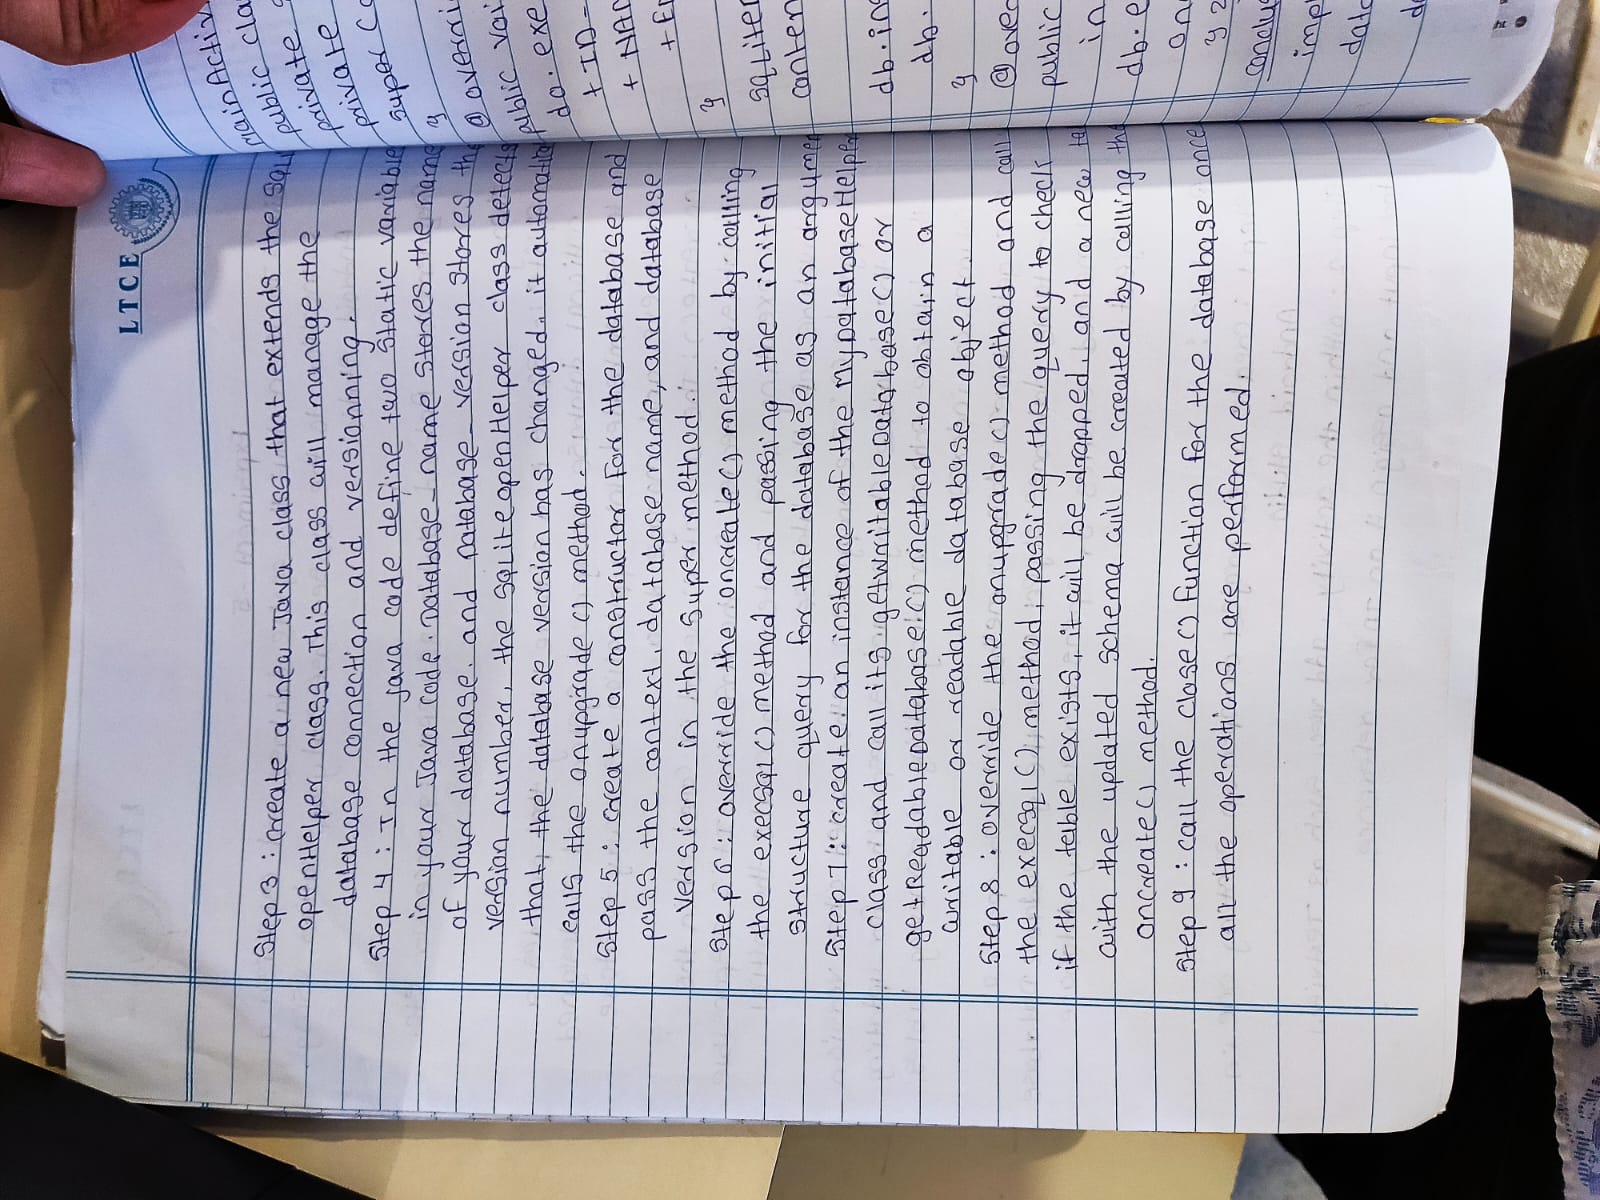 LTCE
Step 3 : create a new Java class that extends the SQLi
openHelper class. This class will manage the
database connection and versionning.
Step 4 : In the java code define two static variable
in your Java code. Database_name stores the name
of your database. and Database_version stores the
version number, the SQLiteopenHelper class detects
that, the database version has changed. it automatica
calls the onupgrade () method.
Step 5 : create a constructor for the database and
pass the context, database name, and database
version in the super method.
Step 6 : override the oncreate() method by calling
the execsql () method and passing the initial
structure query for the database as an argumen
Step 7 : create an instance of the MyDatabaseHelper
class and call its getwritableDatabase() or
getReadableDatabase() method to obtain a
writable or readable database object.
Step 8 : override the onupgrade() method and call
the execsql () method, passing the query to check
if the table exists, it will be dropped. and a new ta
with the updated schema will be created by calling the
oncreate() method.
Step 9 : call the close() function for the database once
all the operations are performed.
mainActiv
public cla
private
private
super Co
}
@ overri
public voi
db. exe
+ ID
+ NAM
+ Em
}
SQLiter
conten
db.ins
db.
}
@ over
public
in
db. e
on
}
conclus
imp
data
de